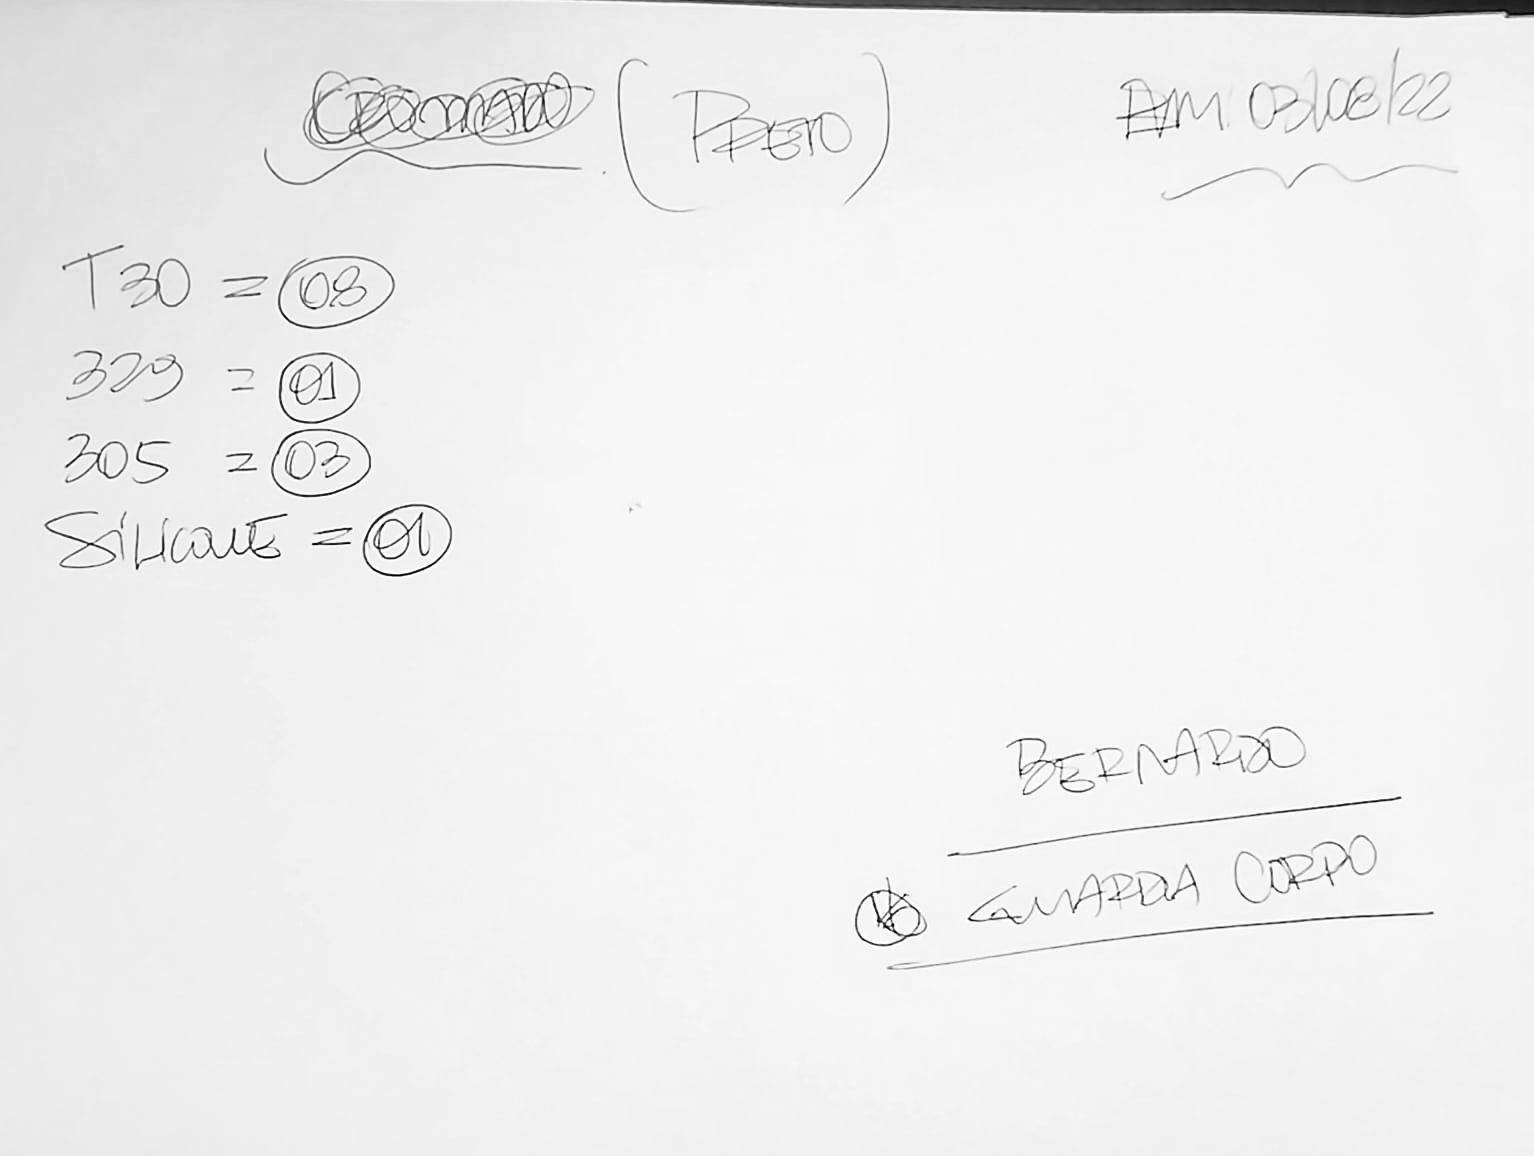 CROMADO (PRETO)
EM 03/08/22
T30 = 08
329 = 01
305 = 03
SILICONE = 01
BERNARDO
GUARDA CORPO